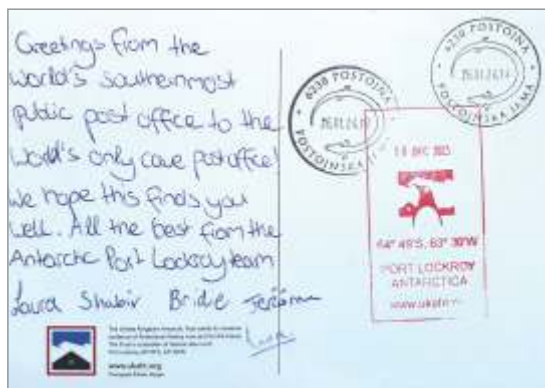 Greetings from the
World's southernmost
public post office to the
World's only cave postoffice!
We hope this finds you
well. All the best from the
Antarctic Port Lockroy team
Laura Shabir Bridie
6230 POSTOJNA
POSTOJNSKA JAMA
6230 POSTOJNA
POSTOJNSKA JAMA
64° 49'S, 63° 30'W
PORT LOCKROY
ANTARCTICA
www.ukaht.org